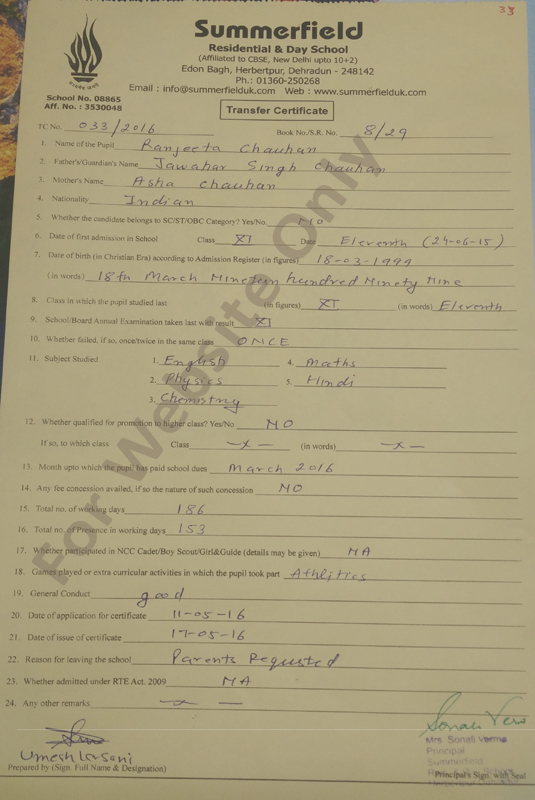 33
Summerfield
Residential & Day School
(Affiliated to CBSE, New Delhi upto 10+2)
Edon Bagh, Herbertpur, Dehradun - 248142
Ph.: 01360-250268
Email : info@summerfielduk.com Web : www.summerfielduk.com
School No. 08865
Aff. No. : 3530048
Transfer Certificate
TC No. 033/2016 Book No./S.R. No. 8/29
1. Name of the Pupil Ranjeeta Chauhan
2. Father's/Guardian's Name Jawahar Singh Chauhan
3. Mother's Name Asha Chauhan
4. Nationality Indian
5. Whether the candidate belongs to SC/ST/OBC Category? Yes/No. NO
6. Date of first admission in School Class XI Date Eleventh (24-06-15)
7. Date of birth (in Christian Era) according to Admission Register (in figures) 18-03-1999
(in words) 18th March Nineteen hundred Ninety Nine
8. Class in which the pupil studied last (in figures) XI (in words) Eleventh
9. School/Board Annual Examination taken last with result XI
10. Whether failed, if so, once/twice in the same class ONCE
11. Subject Studied 1. English 4. Maths
2. Physics 5. Hindi
3. Chemistry
12. Whether qualified for promotion to higher class? Yes/No NO
If so, to which class Class —x— (in words) —x—
13. Month upto which the pupil has paid school dues March 2016
14. Any fee concession availed, if so the nature of such concession NO
15. Total no. of working days 186
16. Total no. of Presence in working days 153
17. Whether participated in NCC Cadet/Boy Scout/Girl&Guide (details may be given) NA
18. Games played or extra curricular activities in which the pupil took part Athlitics
19. General Conduct good
20. Date of application for certificate 11-05-16
21. Date of issue of certificate 17-05-16
22. Reason for leaving the school Parents Requsted
23. Whether admitted under RTE Act. 2009 NA
24. Any other remarks —x—
For Website Only
Sonali Verma
Mrs. Sonali Verma
Principal
Summerfield
Umesh
Prepared by (Sign. Full Name & Designation) Principal's Sign. with Seal